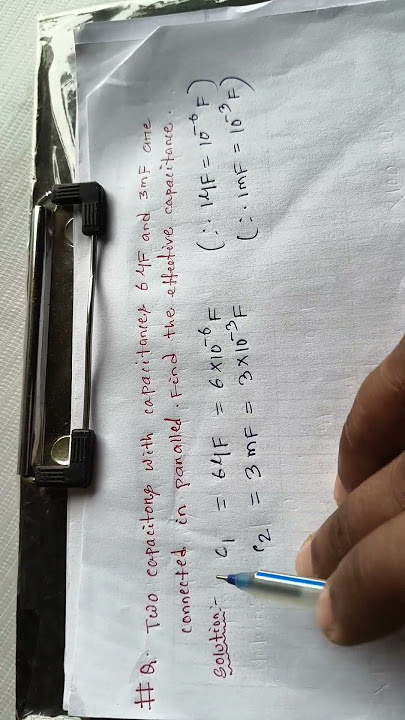 # Q. Two capacitors with capacitances 6 μF and 3 mF are
connected in parallel. Find the effective capacitance.
Solution:-
C₁ = 6 μF = 6 × 10⁻⁶ F (∵ 1 μF = 10⁻⁶ F)
C₂ = 3 mF = 3 × 10⁻³ F (∵ 1 mF = 10⁻³ F)